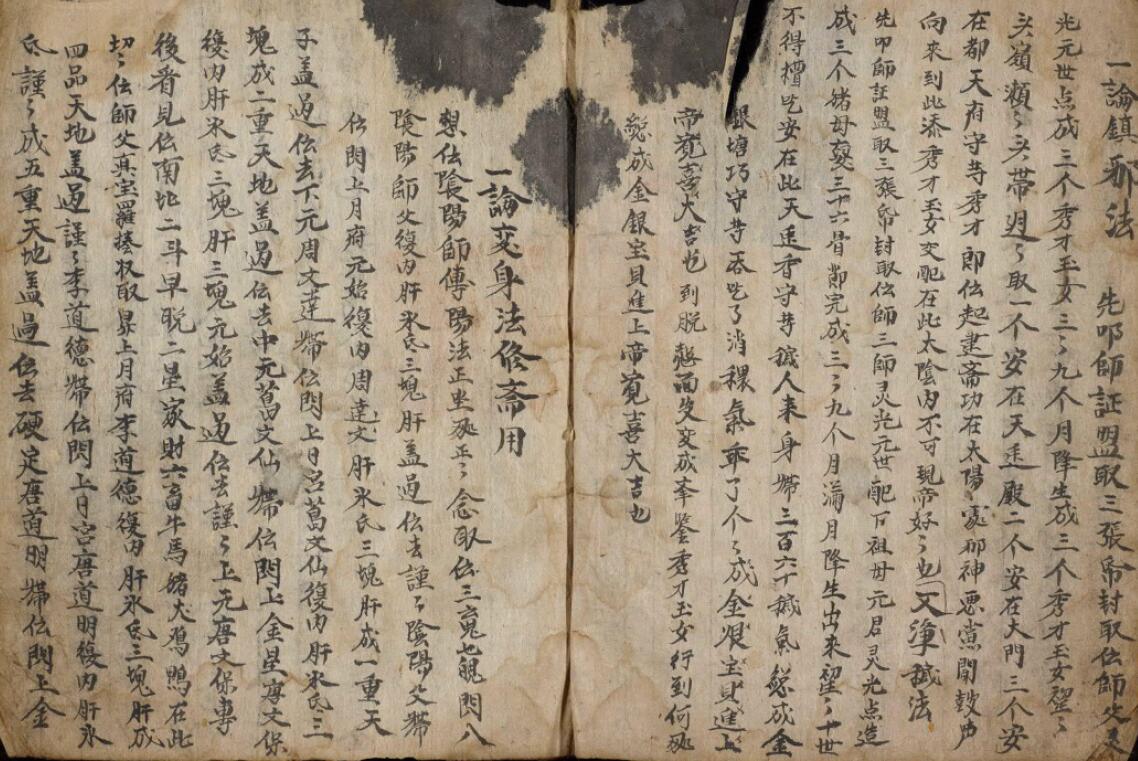 一論鎮邪法 先叩師証盟取三張帋封取伝師父灵
光元世点成三个秀才玉女三〻九个月降生成三个秀才玉女聖〻
头嶺瀬〻头帯週〻取一个安在天𨑨殿二个安在大門三个安
在都天府守䓁秀才即伝起建斋功在太陽䖏邪神悪党聞鼓声
向來到此添秀才玉女交配在此太陰内不可現帝好〻也又浄穢法
先叩師証盟取三張帋封取伝師三師灵光元世配下祖母元君灵光点造
成三个猪母䙪三十六骨節完成三〻九个月满月降生出來聖〻十世
不得糟吃安在此天𨑨香守䓁穢人來身帶三百六十穢氣䱆成金
銀塘巧守䓁吞吃了消穢氣乖了个〻成金銀宝貝進上
帝寛喜大吉也到脱 面 变成奉鉴秀才玉女行到何䖏
䱆成金銀宝貝進上帝寛喜大吉也
一論変身法修斋用
想伝陰陽師傳陽法正坐䖏正〻念取伝三䰟七魄閃入
陰陽師父復内肝氷氏三塊肝盖過伝去謹〻陰陽父帶
伝閃上月府元始復内周达文肝氷氏三塊肝成一重天
子盖過伝去下元周文达帶伝閃上日呂葛文仙復内肝氷氏三
塊成二重天地盖過伝去中元葛文仙帶伝閃上金星唐文保
復内肝氷氏三塊肝三塊元始盖過伝去謹〻上元唐文保專
後看見伝南北二斗早脱二星家財六畜牛馬猪犬鴉鴨在此
切〻伝師父真宝羅捲收取昇上月府李道德復内肝氷氏三塊肝成
四品天地盖過謹〻李道德帶伝閃上月宫唐道明復内肝氷
氏謹〻成五重天地盖過伝去硬定唐道明帶伝閃上金